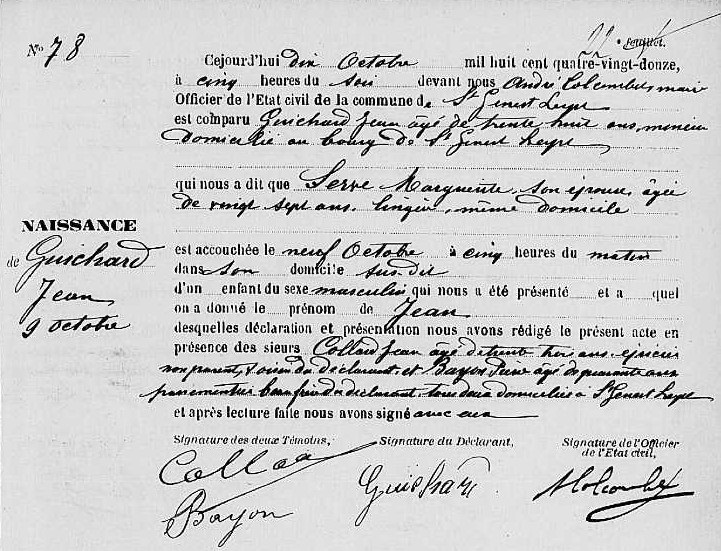 N° 78
22e feuillet.
Cejourd'hui dix Octobre mil huit cent quatre-vingt-donze,
à cinq heures du soir devant nous André Colcombet, maire
Officier de l'Etat civil de la commune de St Genest Lerpt
est comparu Guichard Jean âgé de trente huit ans, menuisier
domicilié au bourg de St Genest Lerpt
qui nous a dit que Serre Marguerite son épouse, âgée
de vingt sept ans lingère, même domicile
NAISSANCE
de Guichard
Jean
9 octobre
est accouchée le neuf Octobre à cinq heures du matin
dans son domicile sus dit
d'un enfant du sexe masculin qui nous a été présenté et a quel
on a donné le prénom de Jean
desquelles déclaration et présentation nous avons rédigé le présent acte en
présence des sieurs Collard Jean âgé de trente trois ans épicier
non parent, voisin du déclarant et Bayon âgé de quarante ans
passementier beau frère du déclarant, tous deux domiciliés à St Genest Lerpt
et après lecture faite nous avons signé avec eux
Signature des deux Témoins,
Signature du Déclarant,
Signature de l'Officier
de l'Etat civil,
Bayon
Guichard
A Colcombet